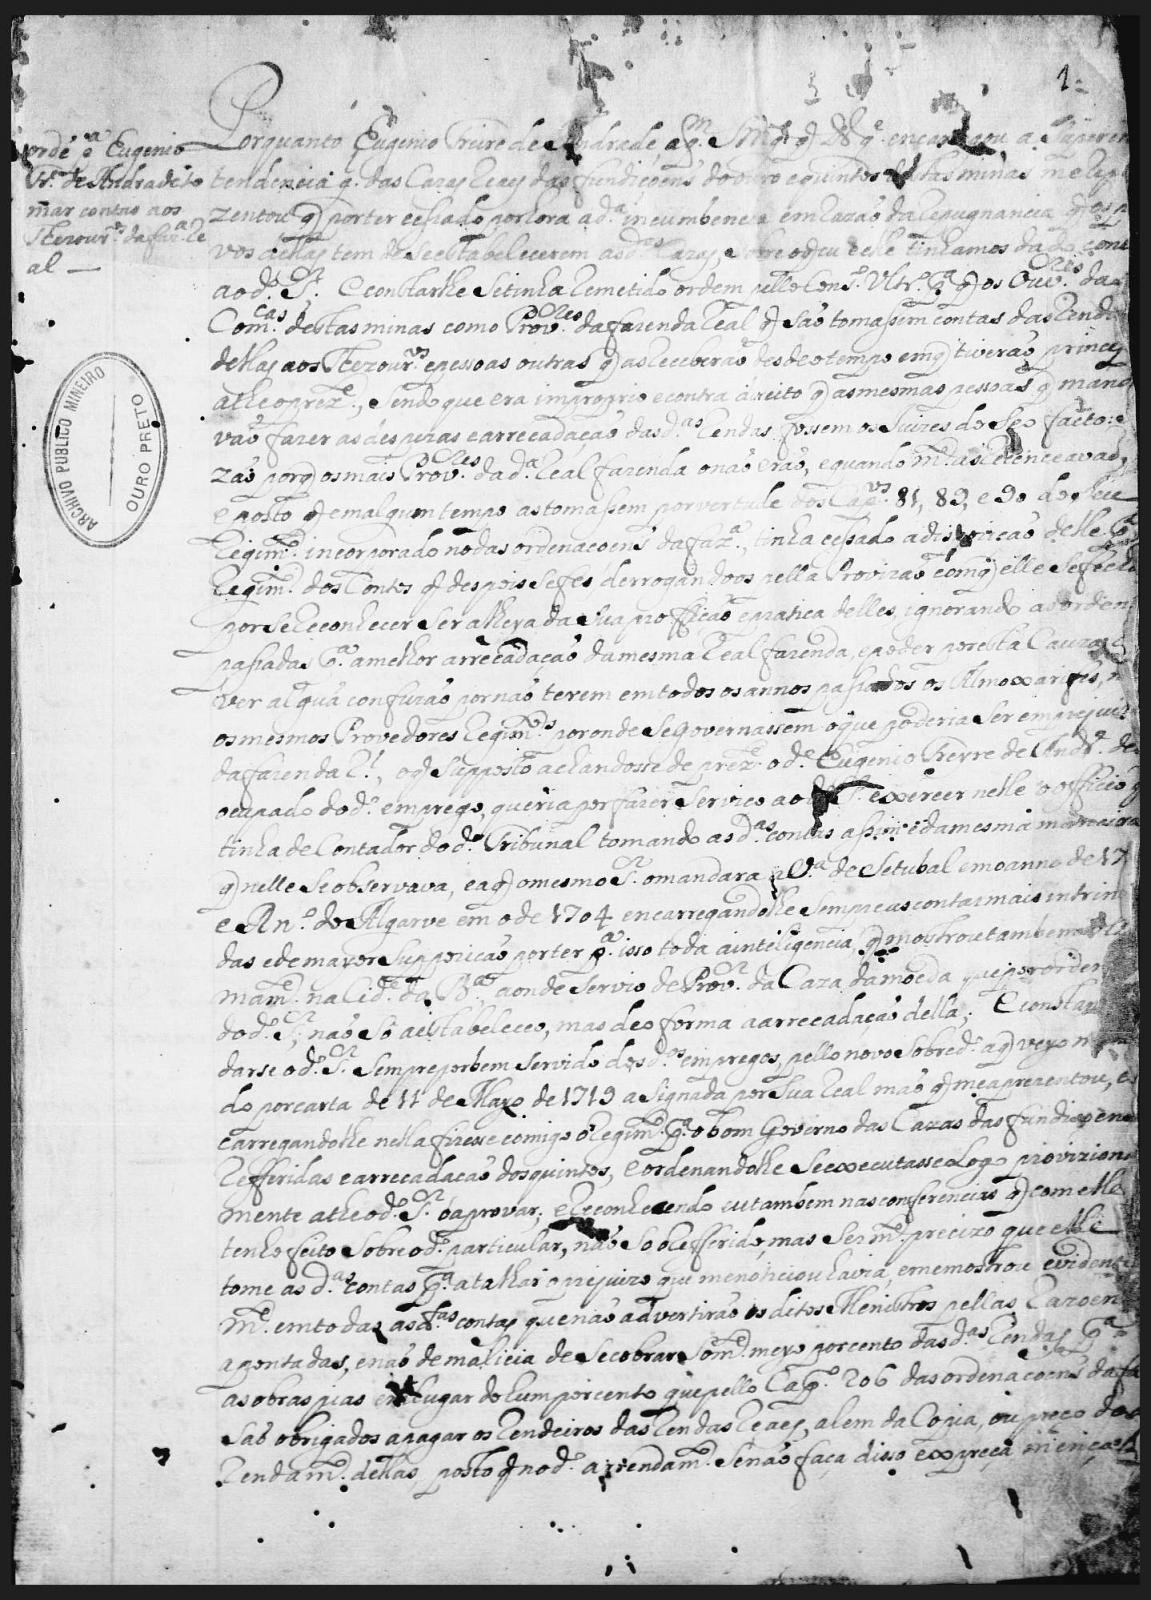 1
orde pª Eugenio
Frº de Andrade to
mar contas aos
Thezourºs da fazª Re
al —
ARCHIVO PUBLICO MINEIRO
OURO PRETO
Porquanto Eugenio Freire de Andrade, a qm SMgde q Ds gde encarregou a Superen
tendencia gl das Cazas Reaes das fundiçoens do ouro e quintos destas minas me repre
zentou q por ter cessado por hora a dª incumbencia em razaõ da repugnancia q os po
vos dellas tem de se estabelecerem as dªs Cazas, sobre o q eu e elle tinhamos dado conta
ao dº Sr. E constarlhe se tinha remetido ordem pello Consº Ultrº pª q os Ouvres das
Comcas destas minas como Provres da fazenda Real q saõ tomassem contas das Rendas
dellas aos Thezourºs e pessoas outras q as receberaõ desde o tempo em q tiveraõ principio
athe o prezte, sendo que era improprio e contra direito q as mesmas pessoas q manda
vaõ fazer as despezas e arrecadaçaõ das dªs rendas fossem os Juizes do seo facto: e
zaõ porq os mais Provres da dª Real fazenda o naõ eraõ, e quando mtº as
e posto q em algum tempo as tomassem por vertude dos Capºs 81, 89, e 90 do seu
Regimtº incorporado no das ordenaçoens da fazª, tinha cessado a dispoziçaõ delle pº
Regimtº dos Contos q despois se fes derrogandoos pella Provizaõ com q elle se fecha
por se reconhecer ser alheya da sua proffiçaõ e pratica delles, ignorando as ordens
passadas pª a melhor arrecadaçaõ da mesma Real fazenda, e poder por esta Cauza ha
ver algũa confuzaõ por naõ terem em todos os annos passados os Almoxarifes, n
os mesmos Provedores Regimtºs por onde se governassem o que poderia ser em prejuizo
da fazenda Rl, o q supposto achandosse de prezte o dº Eugenio Freyre de Andrº des
ocupado do dº emprego, queria por fazer serviço ao dº Sr. exercer nelle o officio q
tinha de Contador do dº Tribunal tomando as dªs contas assim e da mesma maneira
q nelle se observava, e a q o mesmo Sr. o mandara a Vª de Setubal em o anno de 17
e Rnº do Algarve em o de 1704 encarregandolhe sempre as contas mais intrinca
das e de mayor suppoziçaõ por ter pª isso toda a inteligencia, q mostrou tambem
mamte na Cidde da Bª, aonde servio de Provor da Caza da moeda, que por ordem
do dº Sr, naõ só a estabeleceo, mas deo forma a arrecadaçaõ della; E constan
darse o dº Sr. sempre por bem servido dos dºs empregos, pello novo sobredº a q veyo
do por carta de 11 de Março de 1719 asignada por Sua Real maõ q me aprezentou, en
carregandolhe nella fizesse comigo o Regimtº pª o bom Governo das Cazas das fundiçoens
refferidas e arrecadaçaõ dos quintos, e ordenandolhe se executasse logo provizional
mente athe o dº Sr. o aprovar; e reconhecendo eu tambem nas conferencias q com elle
tenho feito sobre o dº particular, naõ so o refferido, mas ser mtº precizo que elle
tome as dªs contas pª atalhar o prejuizo que me noticiou havia, e me mostrou evidente
mte em todas as dªs contas que naõ advertiraõ os ditos Menistros pellas razoens
apontadas, e naõ de malicia de se cobrar somte meyo por cento das dªs rendas pª
as obras pias em lugar de hum por cento que pello Capº 206 das ordenaçoens da fª
saõ obrigados a pagar os Rendeiros das rendas Reaes, alem da Copia, ou preço dos
Rendamtºs dellas, posto q no dº arrendamtº se naõ faça disso expreça mençaõ